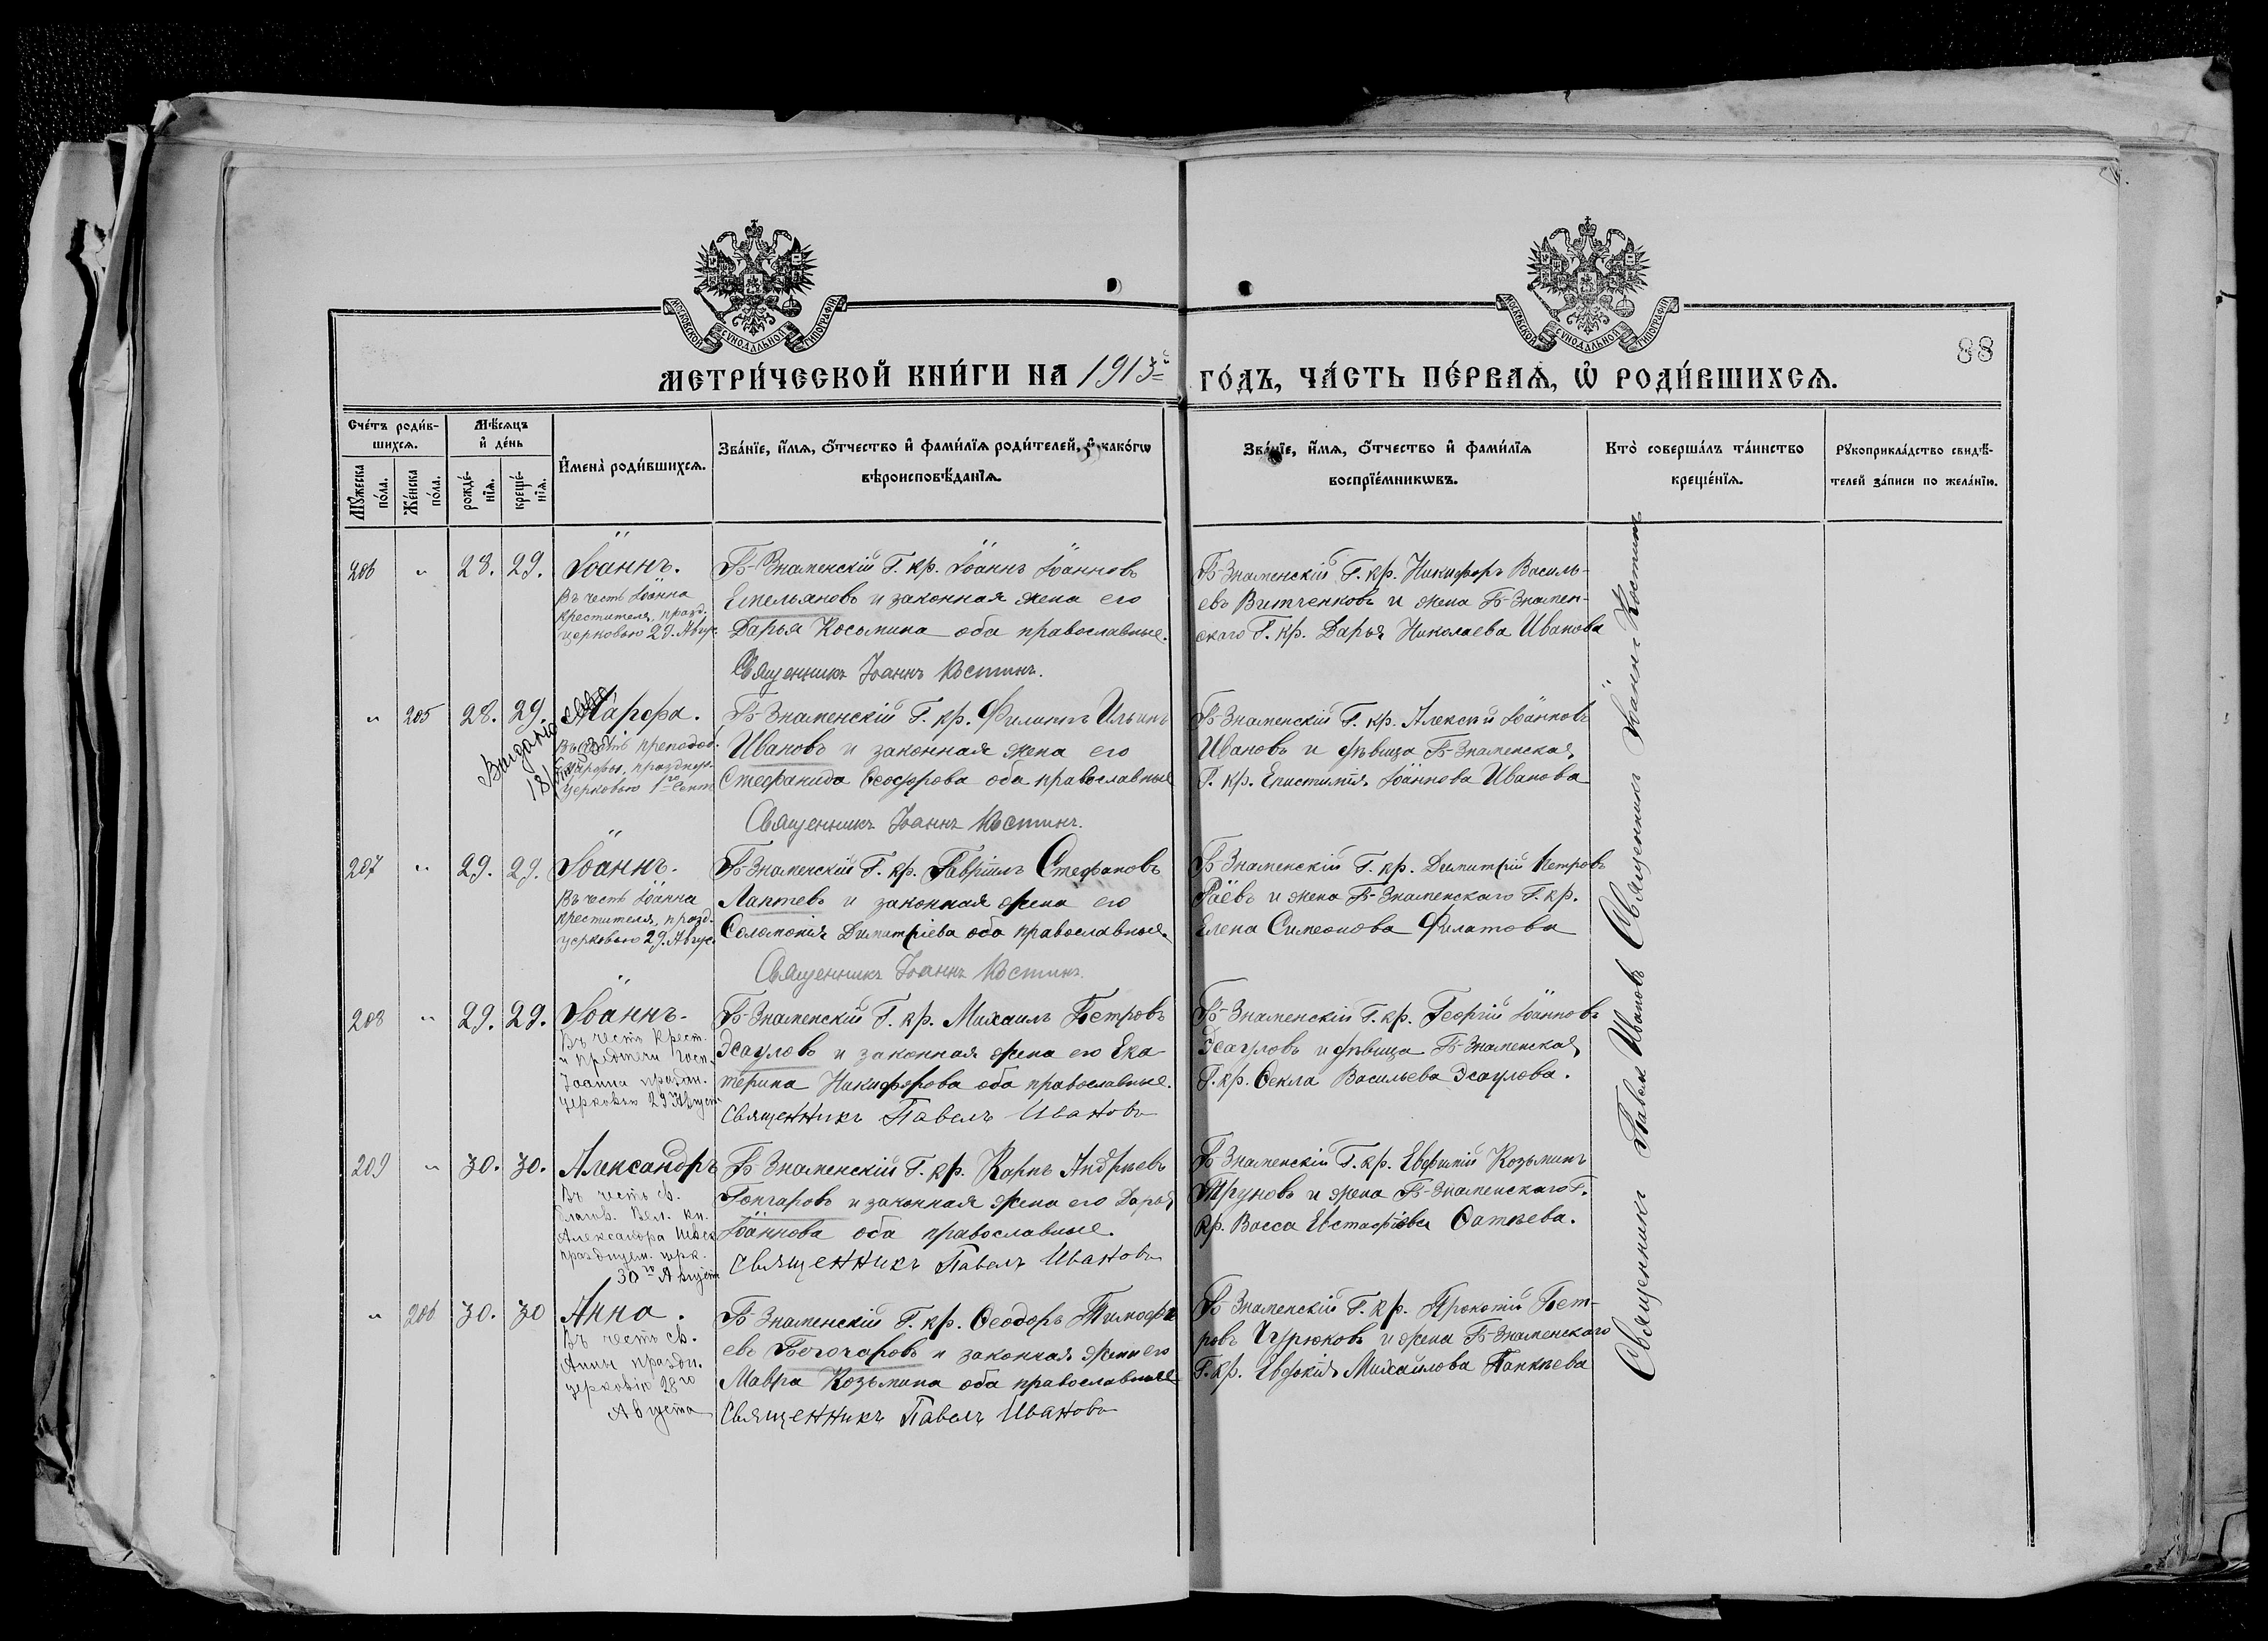 МОСКОВСКОЙ СѴНОДАЛЬНОЙ ТИПОГРАФІИ
МОСКОВСКОЙ СѴНОДАЛЬНОЙ ТИПОГРАФІИ
88
МЕТРИ́ЧЕСКОЙ КНИ́ГИ НА 1913й
ГО́ДЪ, ЧА́СТЬ ПЕ́РВАѦ, Ѡ҆ РОДИ́ВШИХСѦ.
Сче́тъ роди́в-
шихсѧ.
Мѣ́сѧцъ
и҆ де́нь
Мꙋ́жеска
по́ла.
Же́нска
по́ла.
рожде́-
нїѧ.
креще́-
нїѧ.
И҆мена̀ роди́вшихсѧ.
Зва́нїе, и҆́мѧ, ѻ҆́тчество и҆ фами́лїѧ роди́телей, и҆ како́гѡ
вѣроисповѣ́данїѧ.
Зва́нїе, и҆́мѧ, ѻ҆́тчество и҆ фами́лїѧ
воспрїе́мникѡвъ.
Кто̀ соверша́лъ та́инство
креще́нїѧ.
Рꙋкоприкла́дство свидѣ́-
телей за́писи по жела́нїю.
206 " 28. 29. Іоаннъ.
Въ честь Іоанна
Крестителя, празд.
церковью 29. Авгус.
Б-Знаменскій Г. кр. Іоаннъ Іоанновъ
Емельяновъ и законная жена его
Дарья Косьмина оба православные.
Священникъ Іоаннъ Костинъ.
Б-Знаменскій Г. кр. Никифоръ Василь-
евъ Витченковъ и жена Б-Знамен-
скаго Г. кр. Дарья Николаева Иванова
" 205 28. 29. Марфа.
Въ честь преподоб.
Марфы, празднуе.
церковью 1го Сент
Выдано
18/
Б-Знаменскій Г. кр. Филиппъ Ильинъ
Ивановъ и законная жена его
Стефанида Ѳеодорова оба православные
Священникъ Іоаннъ Костинъ.
Б-Знаменскій Г. кр. Алексій Іоанновъ
Ивановъ и дѣвица Б-Знаменская
Г. кр. Епистимія Іоаннова Иванова
207 " 29. 29. Іоаннъ.
Въ честь Іоанна
Крестителя, празд.
церковью 29. Авгус.
Б-Знаменскій Г. кр. Гавріилъ Стефановъ
Лаптевъ и законная жена его
Соломонія Димитріева оба православные.
Священникъ Іоаннъ Костинъ.
Б-Знаменскій Г. кр. Димитрій Петровъ
Раёвъ и жена Б-Знаменскаго Г. кр.
Елена Симеонова Филатова
208 " 29. 29. Іоаннъ.
Въ честь Крест.
и предтечи Госп.
Іоанна праздн.
церковью 29 Август
Б-Знаменскій Г. кр. Михаилъ Петровъ
Эсауловъ и законная жена его Ека-
терина Никифорова оба православные.
Священникъ Павелъ Ивановъ
Б-Знаменскій Г. кр. Георгій Іоанновъ
Эсауловъ и дѣвица Б-Знаменская
Г. кр. Ѳекла Васильева Эсаулова.
209 " 30. 30. Александръ
Въ честь св.
благов. Вел. кн.
Александра Невск
празднуем. церк.
30го Августа
Б-Знаменскій Г. кр. Карпъ Андреевъ
Гончаровъ и законная жена его Дарья
Іоаннова оба православные.
Священникъ Павелъ Ивановъ
Б-Знаменскій Г. кр. Евфимій Козьминъ
Труновъ и жена Б-Знаменскаго Г.
кр. Васса Евстафіева Фатѣева.
" 206 30. 30 Анна.
Въ честь св.
Анны праздн.
церковію 28го
Августа
Б-Знаменскій Г. кр. Ѳеодоръ Тимофе
евъ Богочаровъ и законная жена его
Мавра Козьмина оба православные
Священникъ Павелъ Ивановъ
Б-Знаменскій Г. кр. Прокопій Пет-
ровъ Чурюковъ и жена Б-Знаменскаго
Г. кр. Евдокія Михаилова Панкѣева
Священникъ Павел Ивановъ Священникъ Іоаннъ Костинъ